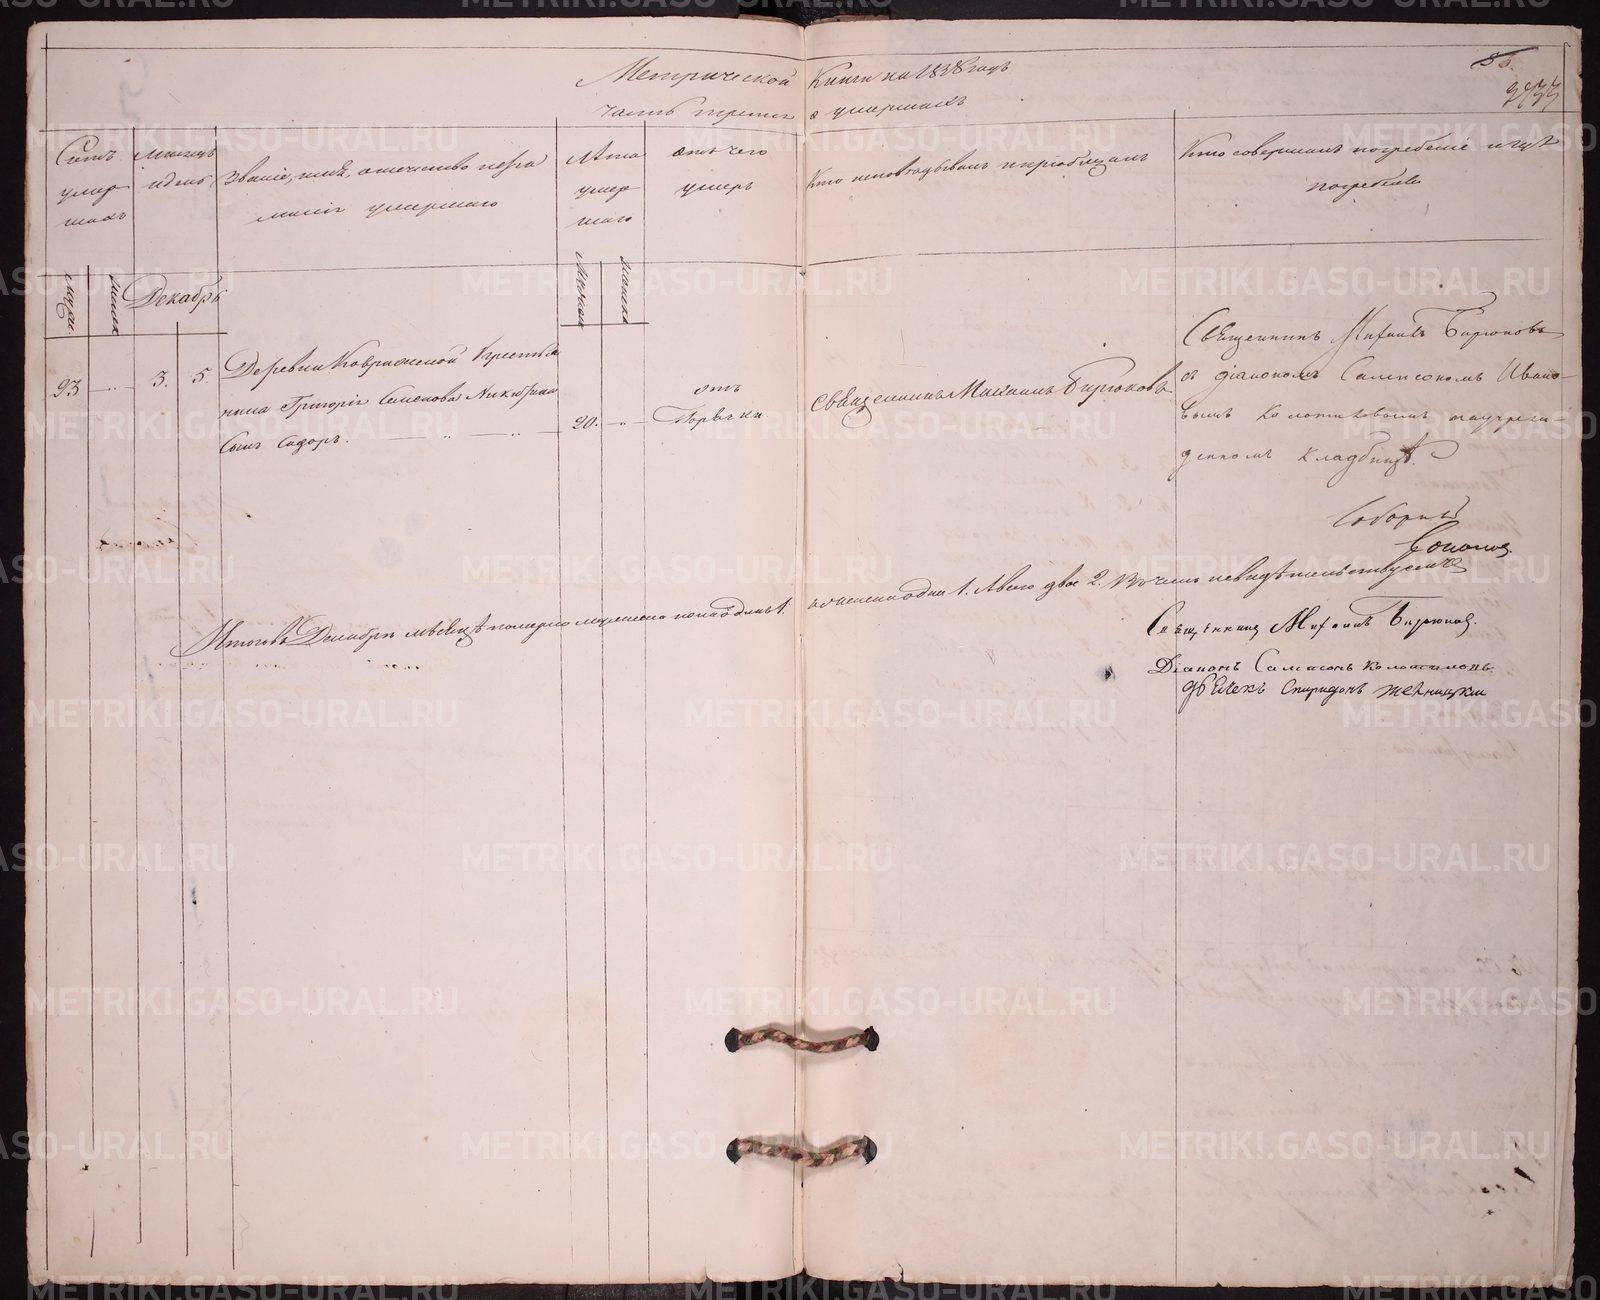 Метрической Книги на 1838 годъ
часть третия о умершихъ
Счетъ умер шихъ
Месяцъ и день
Званіе, имя, отчество и фа милія умершаго
Лета умер шаго
отъ чего умеръ
Кто исповѣдывалъ и пріобщалъ
Кто совершалъ погребеніе и гдѣ погребены
муж.
женск
Декабрь
Мужска
женска
93 — 3. 5.
Деревни Ковриженой Крестья
нина Григорія Семенова Никитина
сынъ Сидоръ.
20.
отъ
Горячки
священникъ Михаилъ Бирюковъ
Священникъ Михаилъ Бирюковъ
съ діакономъ Сампсономъ Ивано
вымъ Колотиловымъ на учреж
денномъ кладбищѣ.
Соборный
Итого въ Декабрѣ мѣсяцѣ померло мужеска пола одинъ 1. женска одна 1. А всего двое 2. Въ чемъ и свидѣтельствуемъ
Священникъ Михаилъ Бирюков.
Діаконъ Сампсонъ Колотиловъ
Дьячекъ Спиридонъ
METRIKI.GASO-URAL.RU